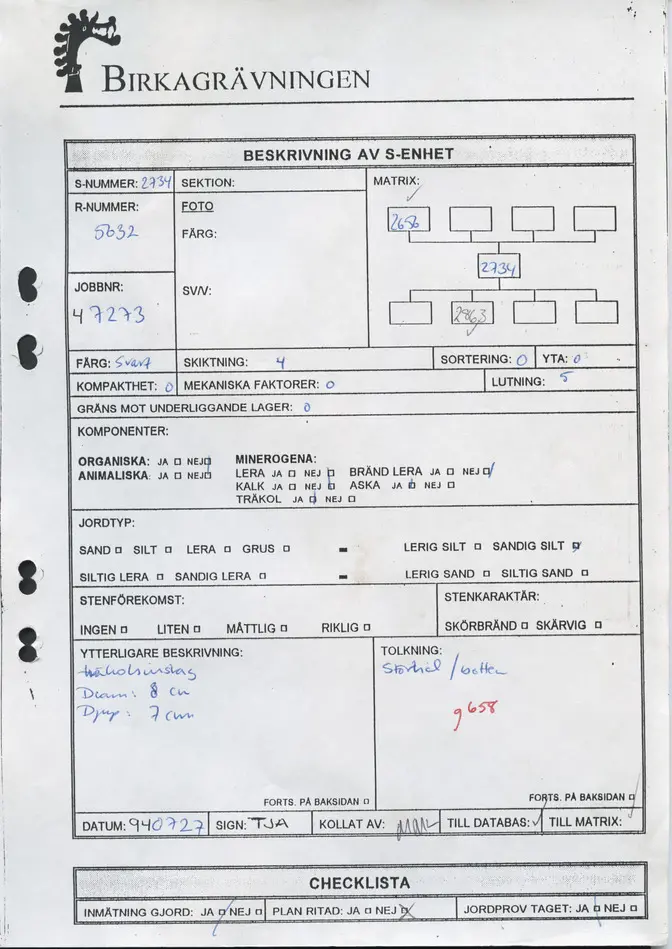 BIRKAGRÄVNINGEN
BESKRIVNING AV S-ENHET
S-NUMMER: 2734 SEKTION: MATRIX:
R-NUMMER: FOTO
5632 FÄRG: 2656
2734
JOBBNR: SV/V:
47273 2863
FÄRG: Svart SKIKTNING: 4 SORTERING: 0 YTA: 0
KOMPAKTHET: 0 MEKANISKA FAKTORER: 0 LUTNING: 5
GRÄNS MOT UNDERLIGGANDE LAGER: 0
KOMPONENTER:
ORGANISKA: JA □ NEJ □ MINEROGENA:
ANIMALISKA: JA □ NEJ □ LERA JA □ NEJ □ BRÄND LERA JA □ NEJ □
KALK JA □ NEJ □ ASKA JA □ NEJ □
TRÄKOL JA □ NEJ □
JORDTYP:
SAND □ SILT □ LERA □ GRUS □ - LERIG SILT □ SANDIG SILT □
SILTIG LERA □ SANDIG LERA □ - LERIG SAND □ SILTIG SAND □
STENFÖREKOMST: STENKARAKTÄR:
INGEN □ LITEN □ MÅTTLIG □ RIKLIG □ SKÖRBRÄND □ SKÄRVIG □
YTTERLIGARE BESKRIVNING: TOLKNING:
träkolsinslag Störhål / botten
Diam: 8 cm
Djup: 7 cm g658
FORTS. PÅ BAKSIDAN □ FORTS. PÅ BAKSIDAN □
DATUM: 940727 SIGN: TJA KOLLAT AV: TILL DATABAS: TILL MATRIX:
CHECKLISTA
INMÄTNING GJORD: JA □ NEJ □ PLAN RITAD: JA □ NEJ □ JORDPROV TAGET: JA □ NEJ □